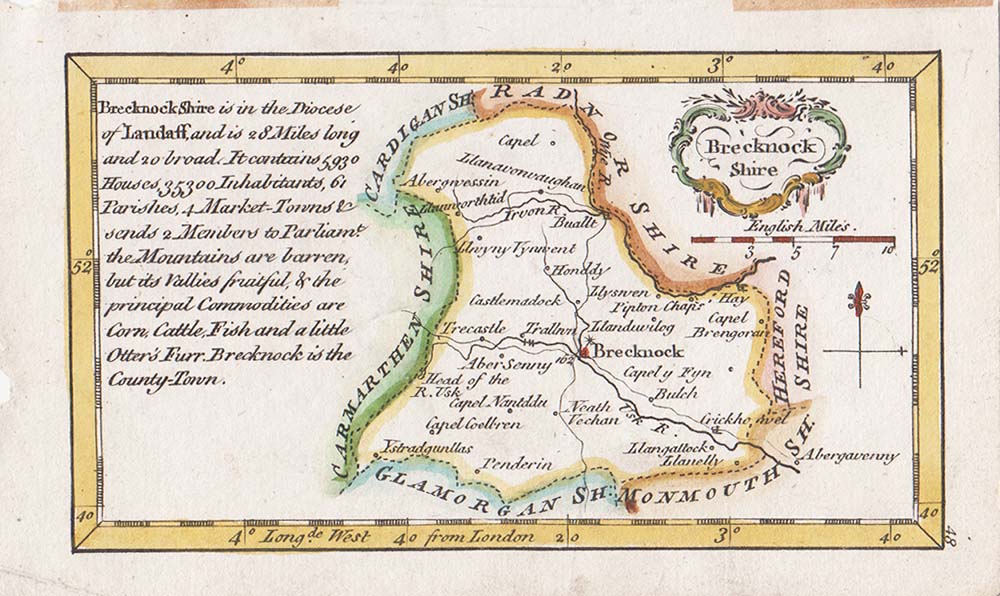 4° 40 20 3° 40
Brecknock Shire is in the Diocese
of Landaff, and is 28 Miles long
and 20 broad. It contains 5930
Houses, 35300 Inhabitants, 61
Parishes, 4 Market-Towns &
sends 2 Members to Parliamt.
the Mountains are barren,
but its Vallies fruitful, & the
principal Commodities are
Corn, Cattle, Fish and a little
Otter's Furr. Brecknock is the
County-Town.
Brecknock
Shire
English Miles.
3 5 7 10
CARDIGAN SH:
RADNOR SHIRE
HEREFORD
SHIRE
MONMOUTH SH.
GLAMORGAN SH:
CARMARTHEN SHIRE
Capel
Llanavonvaughan
Abergwessin
Llanworthtid
Irvon R.
Buallt
Llwyny Fynwent
Honddy
Castlemadock
Llyswen
Pipton Chap.
Hay
Capel
Brengoran
Llanduvilog
Trecastle
Trallwn
Brecknock
Aber Senny
162
Capel y Fyn
Head of the
R. Usk
Bulch
Capel Nantddu
Neath
Vechan
Usk R.
Crickhowel
Capel Coellren
Llangallock
Llanelly
Abergavenny
Ystradgunllas
Penderin
52
52
40
40
4° Longde. West 40 from London 20 3°
48